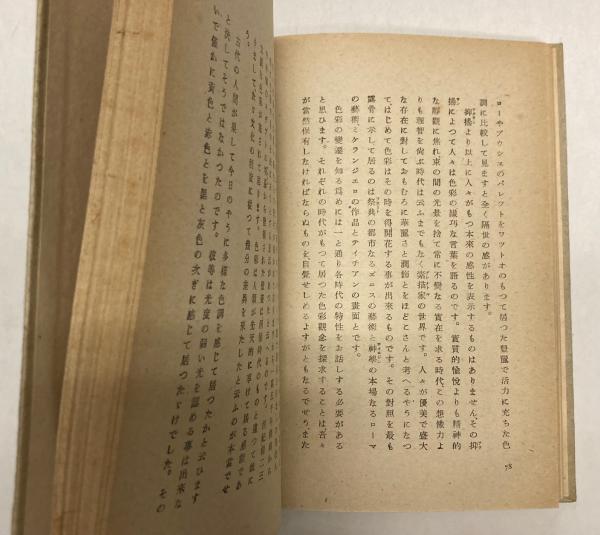 ローやブウシエのパレツトをワツトオのもつて居つた豐麗で活力に充ちた色
調に比較して見ますと全く隔世の感があります。
抑揚より以上に人々がもつ本來の感性を表示するものはありません、その抑
揚によつて人々は色彩の纎巧な言葉を語るのです。實質的愉悅よりも精神的
な靜觀に焦れ束の間の光景を捨て常に不變なる實在を求る時代、この想像力よ
りも理智を尙ぶ時代は云ふまでもなく素描家の世界です。人々が優美で盛大
な存在に對しておもむろに華麗さと潤飾とをほどこさんと考へるやうになつ
てはじめて色彩はその時を得開花する事が出來るものです。その對照を最も
露骨に示して居るのは祭典の都市なるヹニスの藝術と神學の本場なるローマ
の藝術ミケランジエロの作品とティチアンの畫面とです。
色彩の變遷を知る爲めには一と通り各時代の特性をお話しする必要がある
と思ひます。それぞれの時代がもつて居つた色彩觀念を探求することは吾々
が當然保有しなければならぬものを自覺せしめるよすがともなるでせう。また
78
う。
古代の人間が果して今日のやうに多樣な色調を感じて居つたかと云ひます
と決してそうではなかつたのです。彼等は光度の弱い光を認める事は出來な
いで僅かに黃色と赤色とを黑と灰色の次ぎに感じて居つただけでした。その